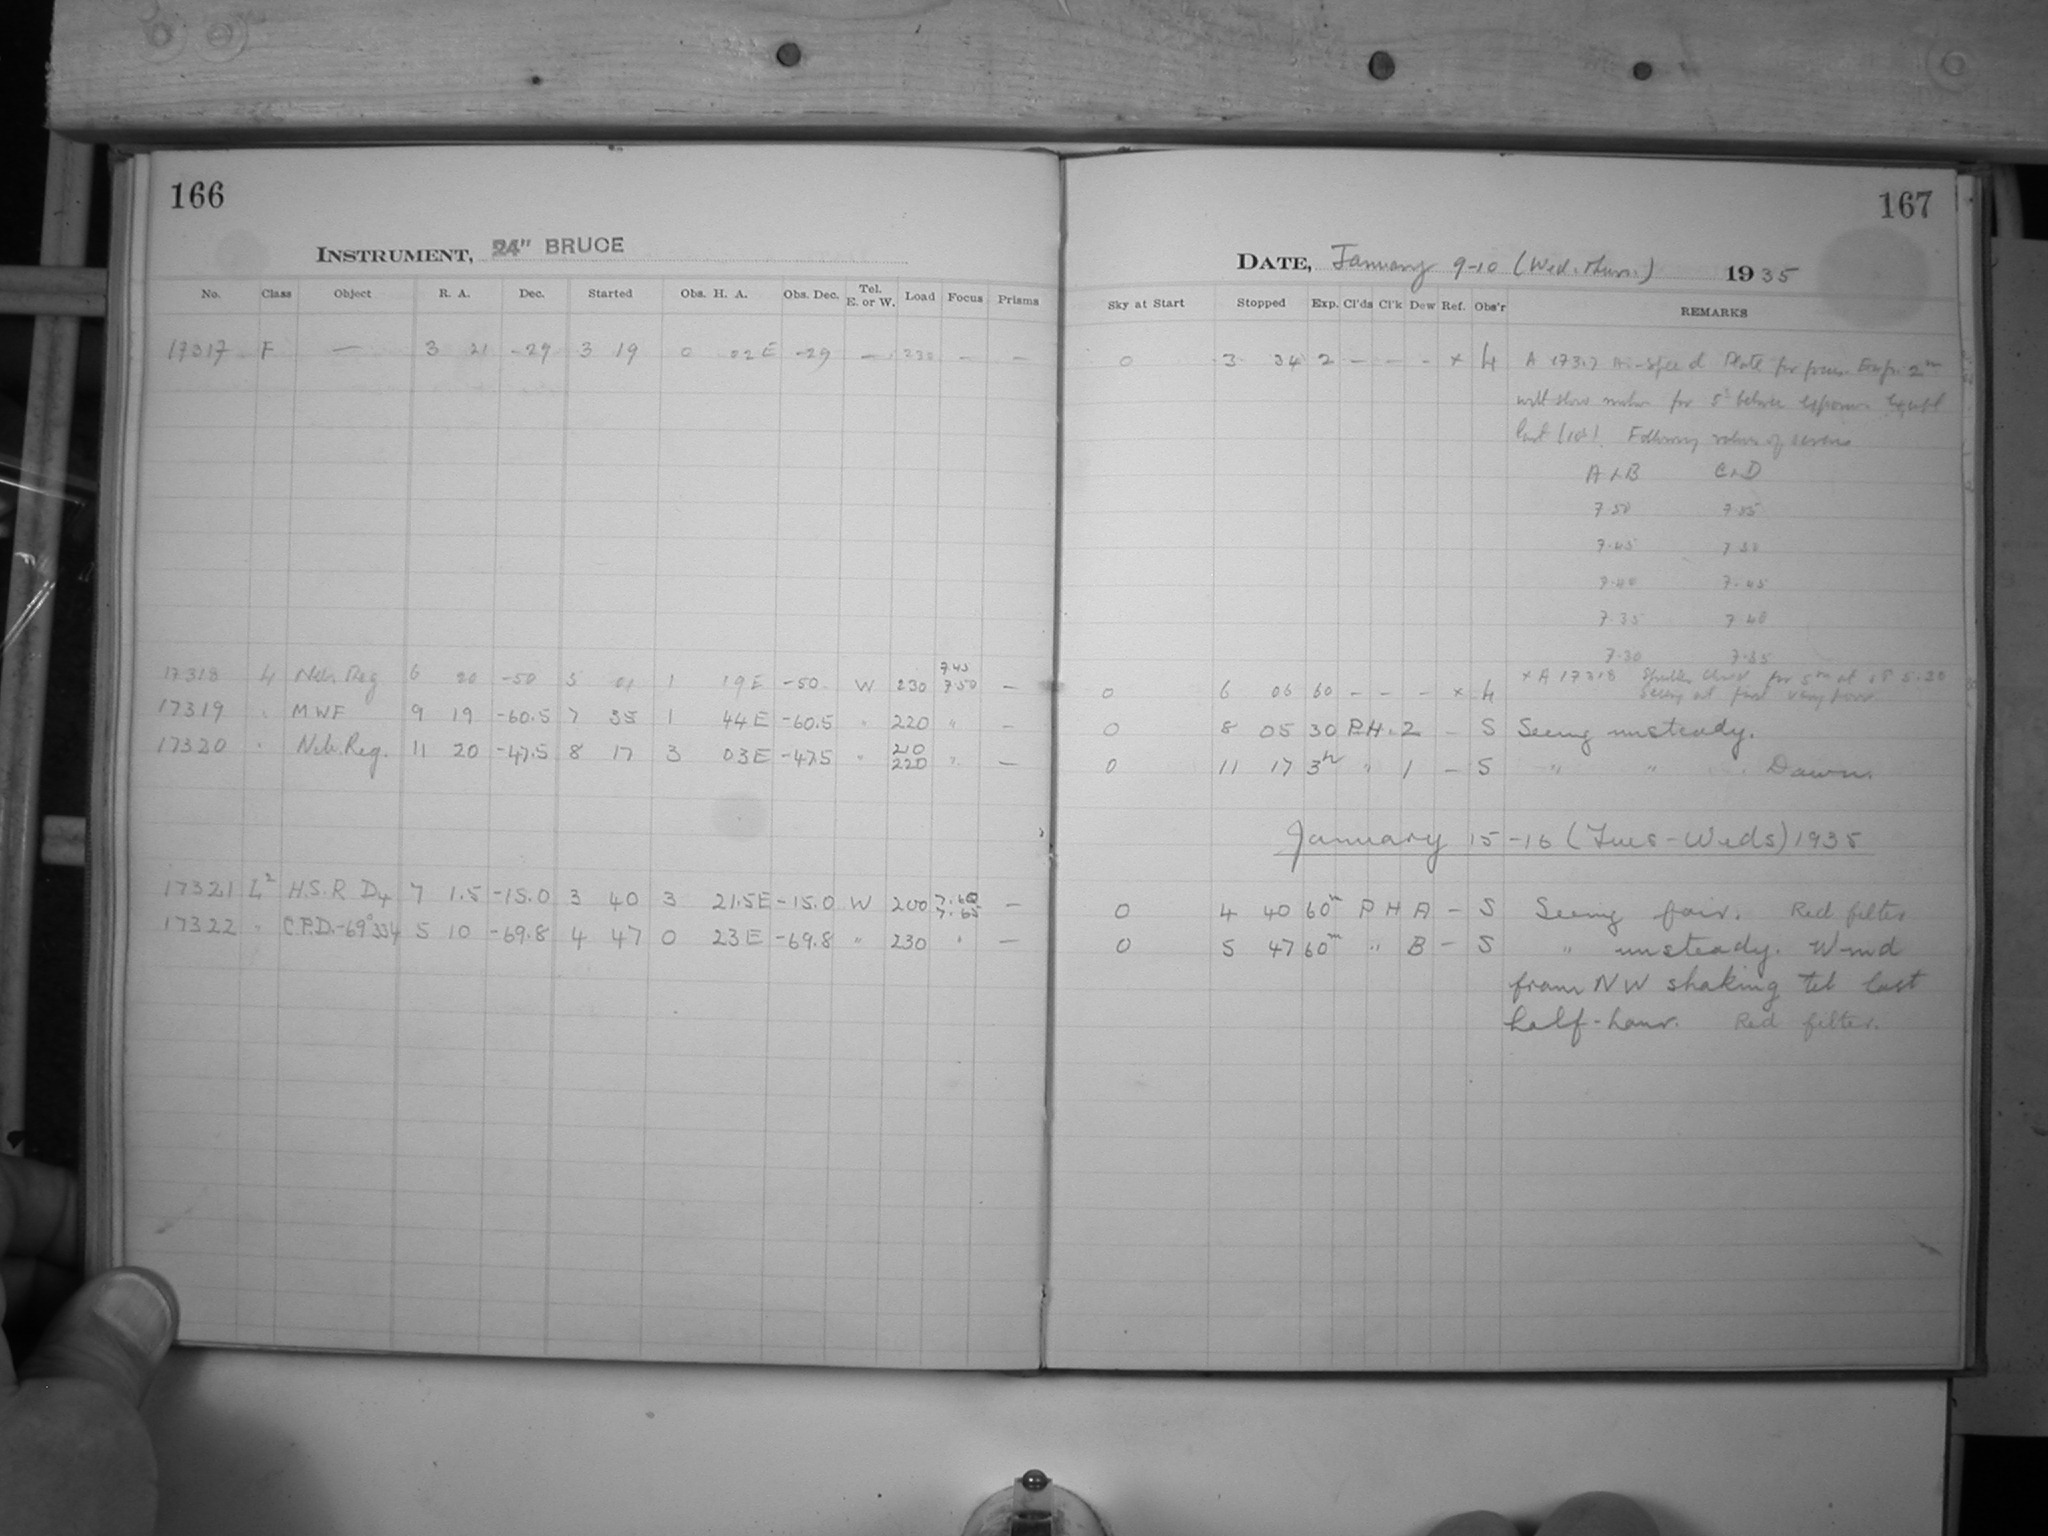 166
INSTRUMENT, 24" BRUCE
No. Class Object R. A. Dec. Started Obs. H. A. Obs. Dec. Tel. E. or W. Load Focus Prisms
17317 F — 3 21 -29 3 19 0 02 E -29 — 230 — —
17318 L Neb. Reg 6 20 -50 5 01 1 19 E -50 W 230 7.45 7.50 —
17319 " MWF 9 19 -60.5 7 35 1 44 E -60.5 " 220 " —
17320 " Neb. Reg. 11 20 -47.5 8 17 3 03 E -47.5 " 210 220 " —
17321 L² H.S.R D4 7 1.5 -15.0 3 40 3 21.5 E -15.0 W 200 7.60 7.65 —
17322 " C.P.D.-69°334 5 10 -69.8 4 47 0 23 E -69.8 " 230 " —
167
DATE, January 9-10 (Wed. Thurs.) 1935
Sky at Start Stopped Exp. Cl'ds Cl'k Dew Ref. Obs'r REMARKS
0 3 34 2 — — - × 4 A 17317 Plate for focus. 2m
with slow motion for 5s between exposures except
last (10s). Following values of screws
A & B C & D
7.50 7.55
7.45 7.50
7.40 7.45
7.35 7.40
7.30 7.35
0 6 06 60 - - - × 4 × A 17318 for 5m at 5.20
Seeing at first very poor
0 8 05 30 P.H. 2 - S Seeing unsteady.
0 11 17 3h " 1 - S " " Dawn.
January 15-16 (Tues-Weds) 1935
0 4 40 60m P H A - S Seeing fair. Red filter
0 5 47 60m " B - S " unsteady. Wind
from NW shaking tel last
half-hour. Red filter.